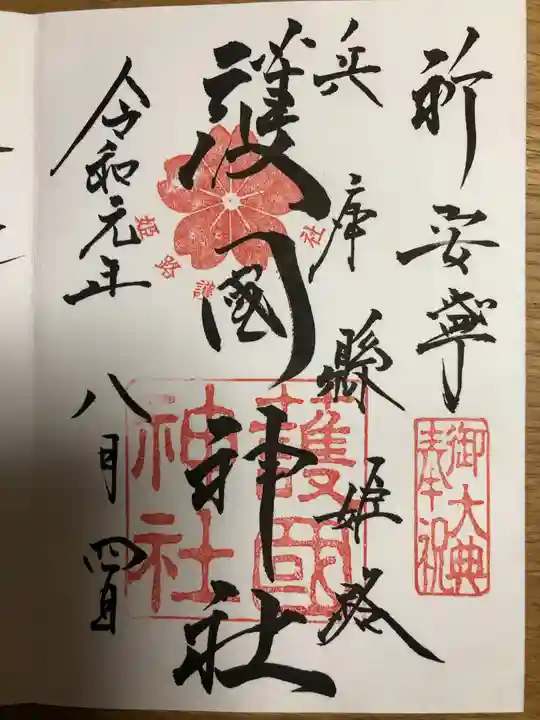 祈安寧
御大典
奉祝
兵庫縣姫路
護國神社
姫路護
社
護國
神社
令和元年
八月四日